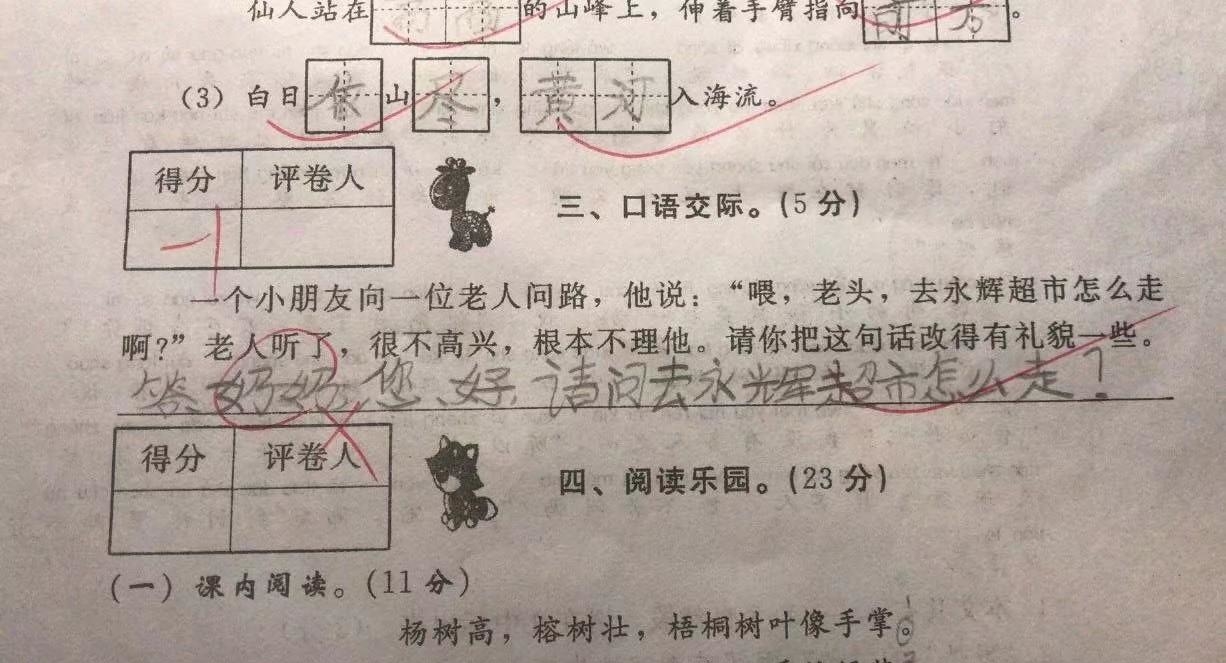 仙人站在的山峰上，伸着手臂指向前方。
(3) 白日依山尽，黄河入海流。
得分 评卷人
三、口语交际。(5分)
-1
一个小朋友向一位老人问路，他说：“喂，老头，去永辉超市怎么走
啊?”老人听了，很不高兴，根本不理他。请你把这句话改得有礼貌一些。
答、妈妈、您、好、请问去永辉超市怎么走？
得分 评卷人
四、阅读乐园。(23分)
(一) 课内阅读。(11分)
杨树高，榕树壮，梧桐树叶像手掌。